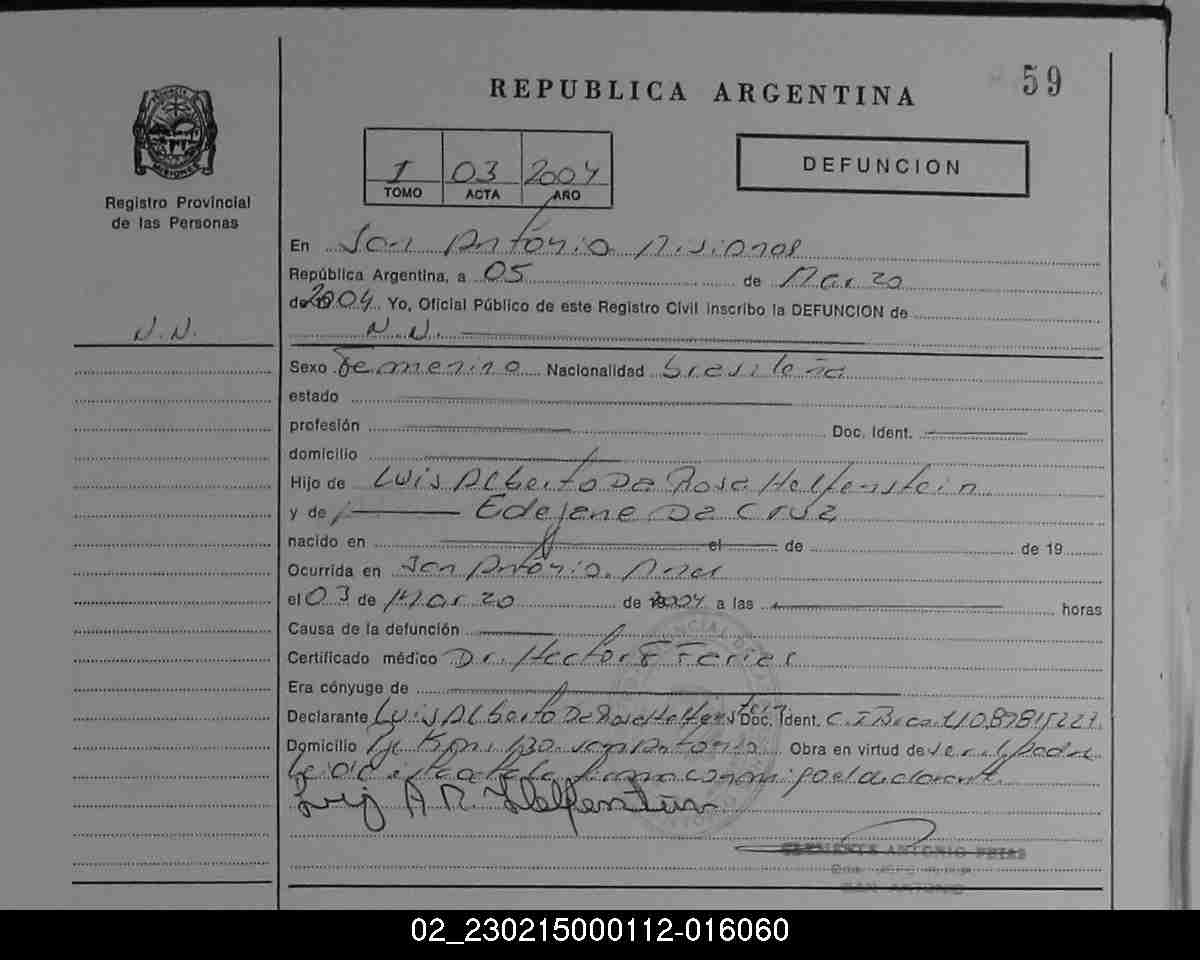 REPUBLICA ARGENTINA
59
1 03 2004
TOMO ACTA AÑO
DEFUNCION
MISIONES
Registro Provincial
de las Personas
N.N.
En San Antonio Misiones
República Argentina, a 05 de Marzo
de 2004. Yo, Oficial Público de este Registro Civil inscribo la DEFUNCION de
N.N.
Sexo Femenino Nacionalidad brasileña
estado
profesión Doc. Ident.
domicilio
Hijo de Luis Alberto Da Rosa Helfenstein
y de Edejane Da Cruz
nacido en el de de 19
Ocurrida en San Antonio, Mnes
el 03 de Marzo de 2004 a las horas
Causa de la defunción
Certificado médico Dr. Hector
Era cónyuge de
Declarante Luis Alberto Da Rosa Helfenstein Doc. Ident.
Domicilio San Antonio Obra en virtud de ser el padre
Leida el acta la firma conmigo el declarante.
Luiz A R. Helfenstein
CLEMENTE ANTONIO FRIAS
SAN ANTONIO
02_230215000112-016060